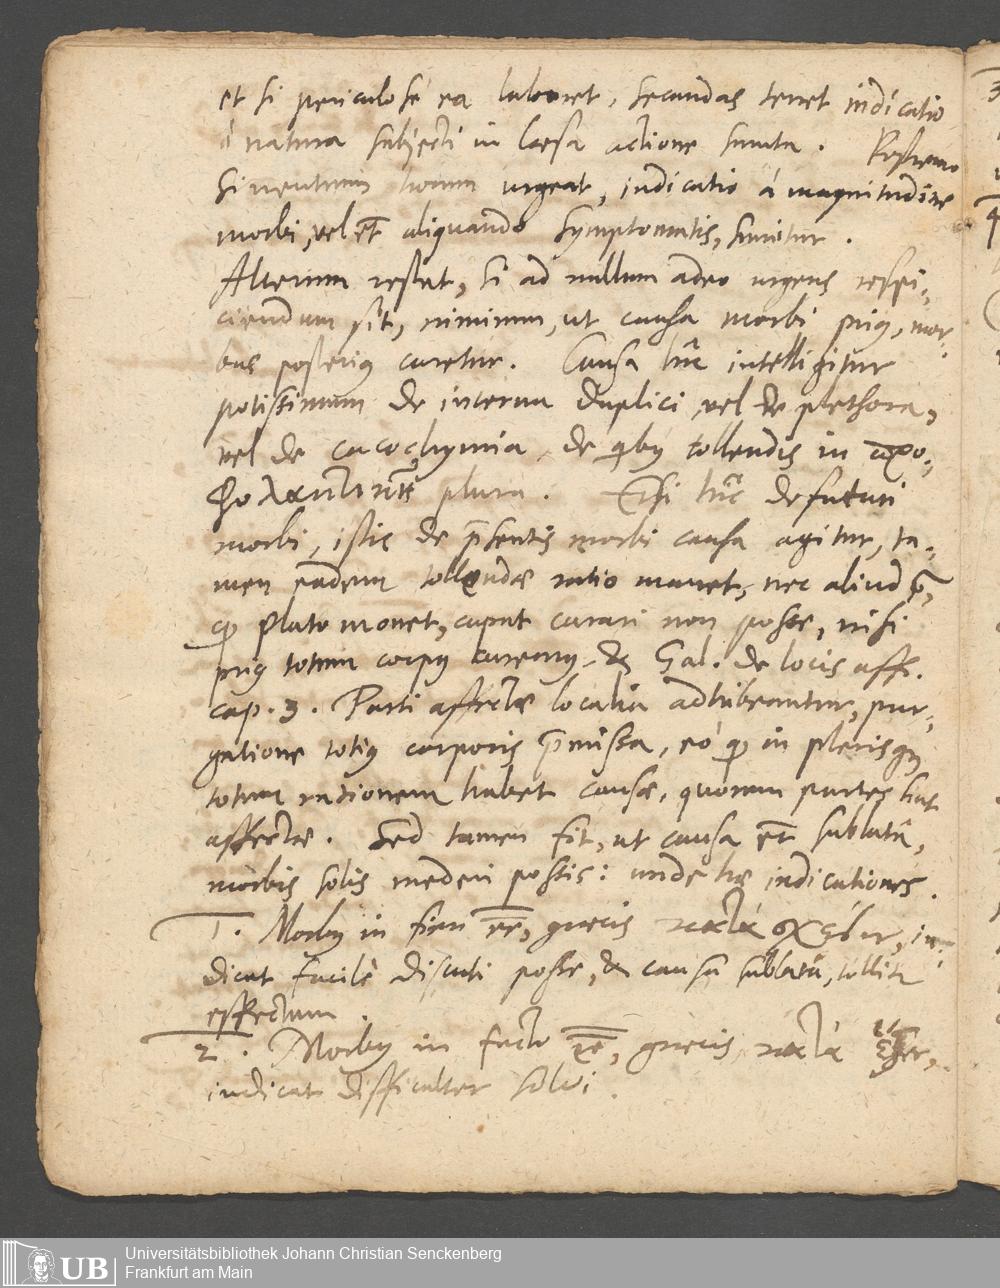 et si periculosé ea laboret, secundas tenet indicatio
á natura subjecti in laesa actione sumta. Postremo
si neutrum horum urgeat, indicatio á magnitudine
morbi, vel et aliquando symptomatis, sumitur.
Alterum restat, si ad nullum adeo urgens respi-
ciendum sit, nimirum, ut causa morbi prius, mor-
bus posterius curetur. Causa hic intelligitur
potissimum de interna duplici, vel de plethora,
vel de cacochymia, de quibus tollendis in προ-
φυλακτικῇ plura. Etsi hic de futuri
morbi, istic de praesentis morbi causa agitur, ta-
men eadem tollendae ratio manet, nec aliud est,
quod Plato monet, caput curari non posse, nisi
prius totum corpus curemus, & Gal. de locis aff.
cap. 3. Parti affectae localia adhibeantur, pur-
gatione totius corporis praemissa, eó quod in plerisque
totum rationem habet causae, quorum partes sunt
affectae. Sed tamen fit, ut causa et sublata,
morbis solis mederi possis: unde hae indicationes.
1. Morbus in fieri esse, graecis κατὰ σχέσιν, in-
dicat facilè discuti posse, & causa sublata, tollit
effectum.
2. Morbus in facto esse, graecis κατὰ ἕξιν,
indicat difficulter solvi.
Universitätsbibliothek Johann Christian Senckenberg
Frankfurt am Main
UB